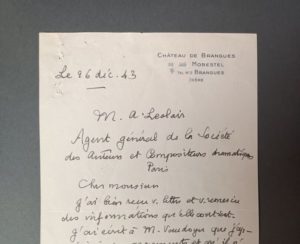 CHÂTEAU DE BRANGUES
MORESTEL
TEL. N° 2 BRANGUES
ISÈRE
Le 26 déc. 43
M. A Leslair
Agent général de la Société
des Auteurs et Compositeurs dramatiques
Paris
Cher monsieur
J'ai bien reçu v. lettre et v. remercie
des informations qu'elle contient.
J'ai écrit à M. Vaudoyer que j'